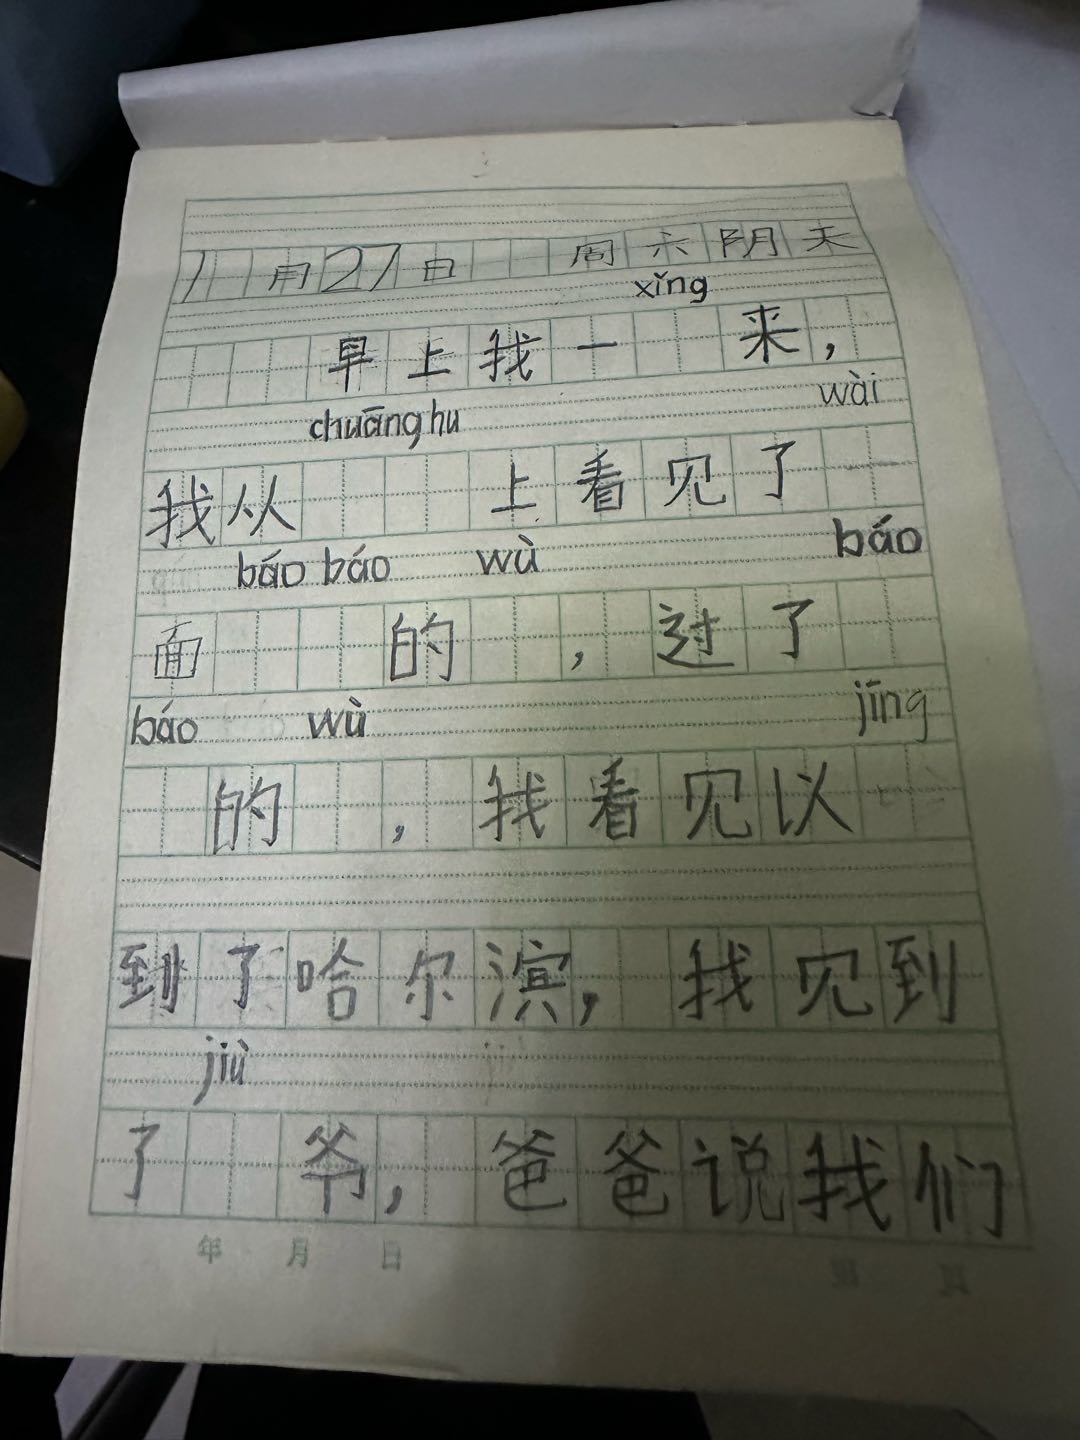 1月27日 周六阴天
xǐng
早上我一 来，
chuānghu wài
我从 上看见了
báo báo wù báo
面 的 ，过了
báo wù jīng
的 ，我看见以
到了哈尔滨，我见到
jiù
了 爷，爸爸说我们
年 月 日 第 页